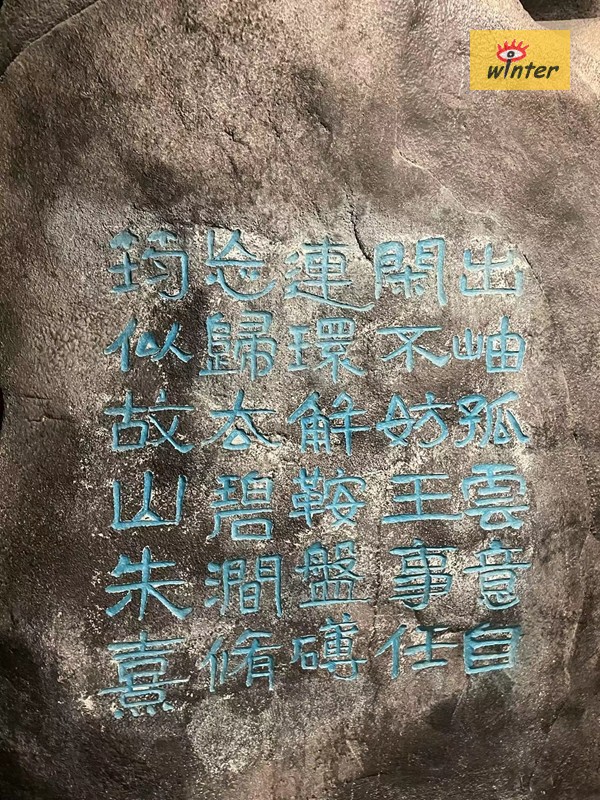 出岫孤雲意自
閑不妨王事任
連環觧鞍盤礴
忘歸去碧澗脩
筠似故山朱熹
winter